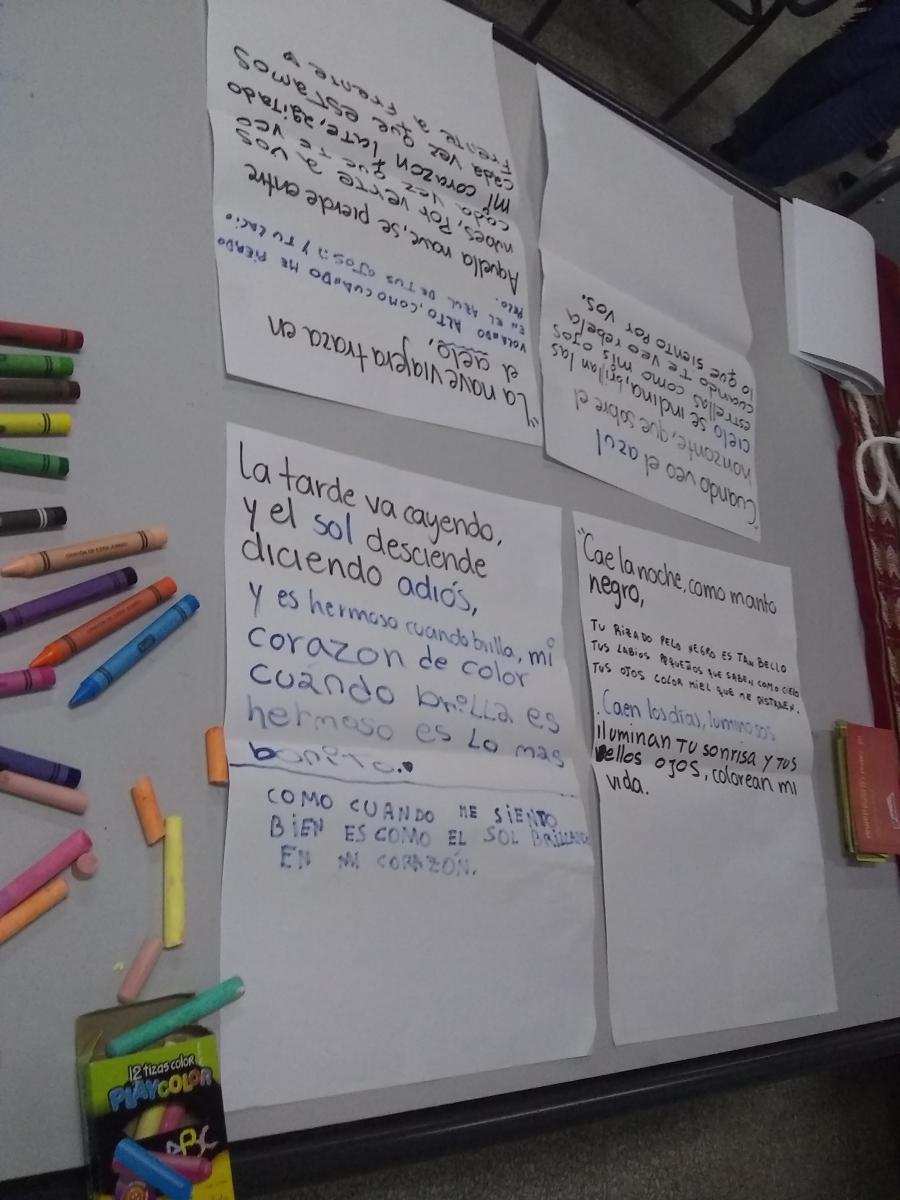 "La nave viajera traza en
el cielo,
VOLANDO ALTO, COMO CUANDO ME PIERDO
EN EL AZUL DE TUS OJOS :) Y TU LACIO
PELO.
Aquella nave, se pierde entre
nubes, Por verte a vos
cada vez que te veo
mi corazon late, agitado
cada vez que estamos
Frente a Frente
"Cuando veo el azul
horizonte, que sobre el
cielo se inclina, brillan las
estrellas como mis ojos
cuando te veo rebela
lo que siento por vos.
la tarde va cayendo,
y el sol desciende
diciendo adiós,
y es hermoso cuando brilla, mi
corazon de color
cuándo brilla es
hermoso es lo mas
bonito.
COMO CUANDO ME SIENTO
BIEN ES COMO EL SOL BRILLANDO
EN MI CORAZÓN.
"Cae la noche, como manto
negro,
TU RIZADO PELO NEGRO ES TAN BELLO
TUS LABIOS PEQUEÑOS QUE SABEN COMO CIELO
TUS OJOS COLOR MIEL QUE ME DISTRAEN.
Caen los días, luminosos
iluminan tu sonrisa y tus
bellos ojos, colorean mi
vida.
12 tizas color
PLAYCOLOR
ABC